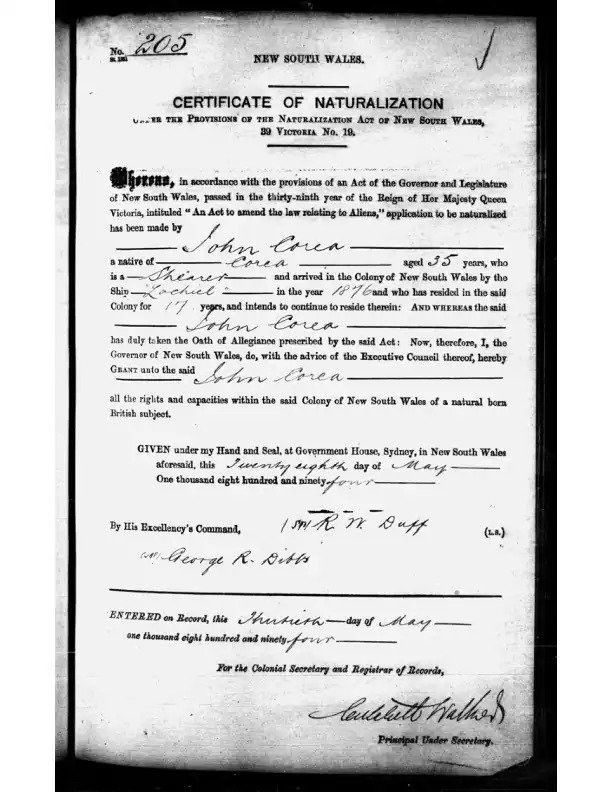 No. 205
NEW SOUTH WALES.
CERTIFICATE OF NATURALIZATION
UNDER THE PROVISIONS OF THE NATURALIZATION ACT OF NEW SOUTH WALES,
39 VICTORIA No. 19.
Whereas, in accordance with the provisions of an Act of the Governor and Legislature
of New South Wales, passed in the thirty-ninth year of the Reign of Her Majesty Queen
Victoria, intituled "An Act to amend the law relating to Aliens," application to be naturalized
has been made by
John Corea
a native of Corea aged 35 years, who
is a Shearer and arrived in the Colony of New South Wales by the
Ship Lochiel in the year 1876 and who has resided in the said
Colony for 17 years, and intends to continue to reside therein: AND WHEREAS the said
John Corea
has duly taken the Oath of Allegiance prescribed by the said Act: Now, therefore, I, the
Governor of New South Wales, do, with the advice of the Executive Council thereof, hereby
GRANT unto the said
John Corea
all the rights and capacities within the said Colony of New South Wales of a natural born
British subject.
GIVEN under my Hand and Seal, at Government House, Sydney, in New South Wales
aforesaid, this Twenty eighth day of May
One thousand eight hundred and ninety four
By His Excellency's Command, R. W. Duff (L.S.)
George R. Dibbs
ENTERED on Record, this Thirtieth day of May
one thousand eight hundred and ninety four
For the Colonial Secretary and Registrar of Records,
Critchett Walker
Principal Under Secretary.